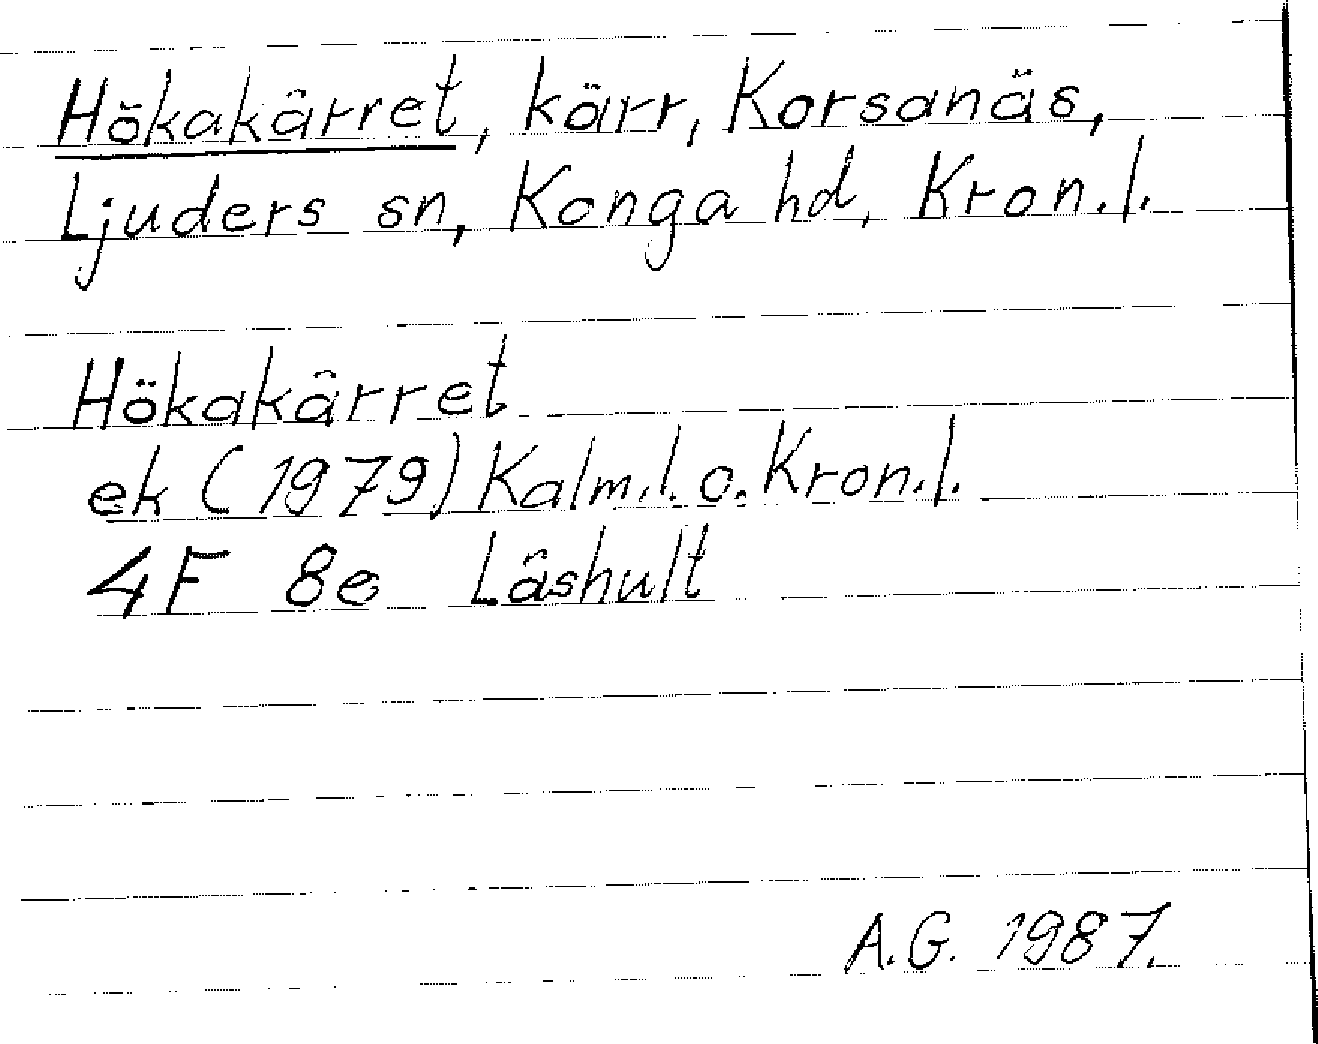 Hökakärret, kärr, Korsanäs,
Ljuders sn, Konga hd, Kron.l.
Hökakärret
ek (1979) Kalm.l. o. Kron.l.
4F 8e Låshult
A.G. 1987.